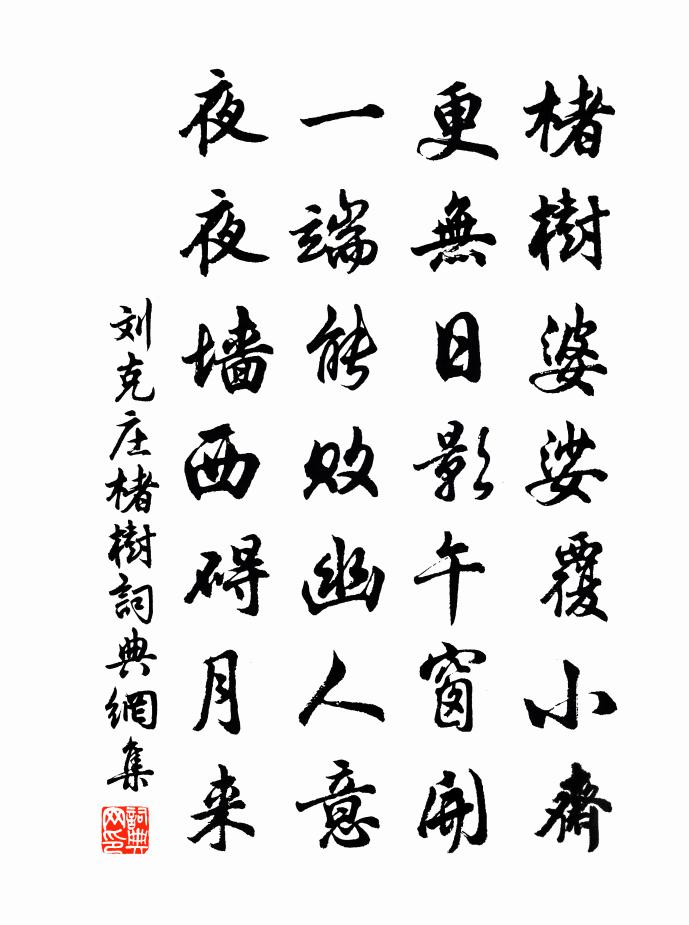 楮樹婆娑覆小齋
更無日影午窗開
一端能敗幽人意
夜夜墙西碍月来
刘克庄楮樹詞典網集
詞典网印